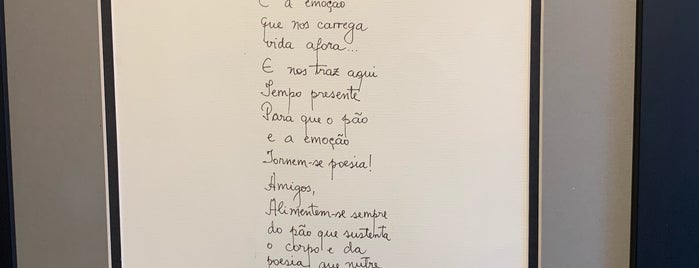 E a emoção
que nos carrega
vida afora...
E nos traz aqui
Tempo presente
Para que o pão
e a emoção
Tornem-se poesia!
Amigos,
Alimentem-se sempre
do pão que sustenta
o corpo e da
poesia que nutre